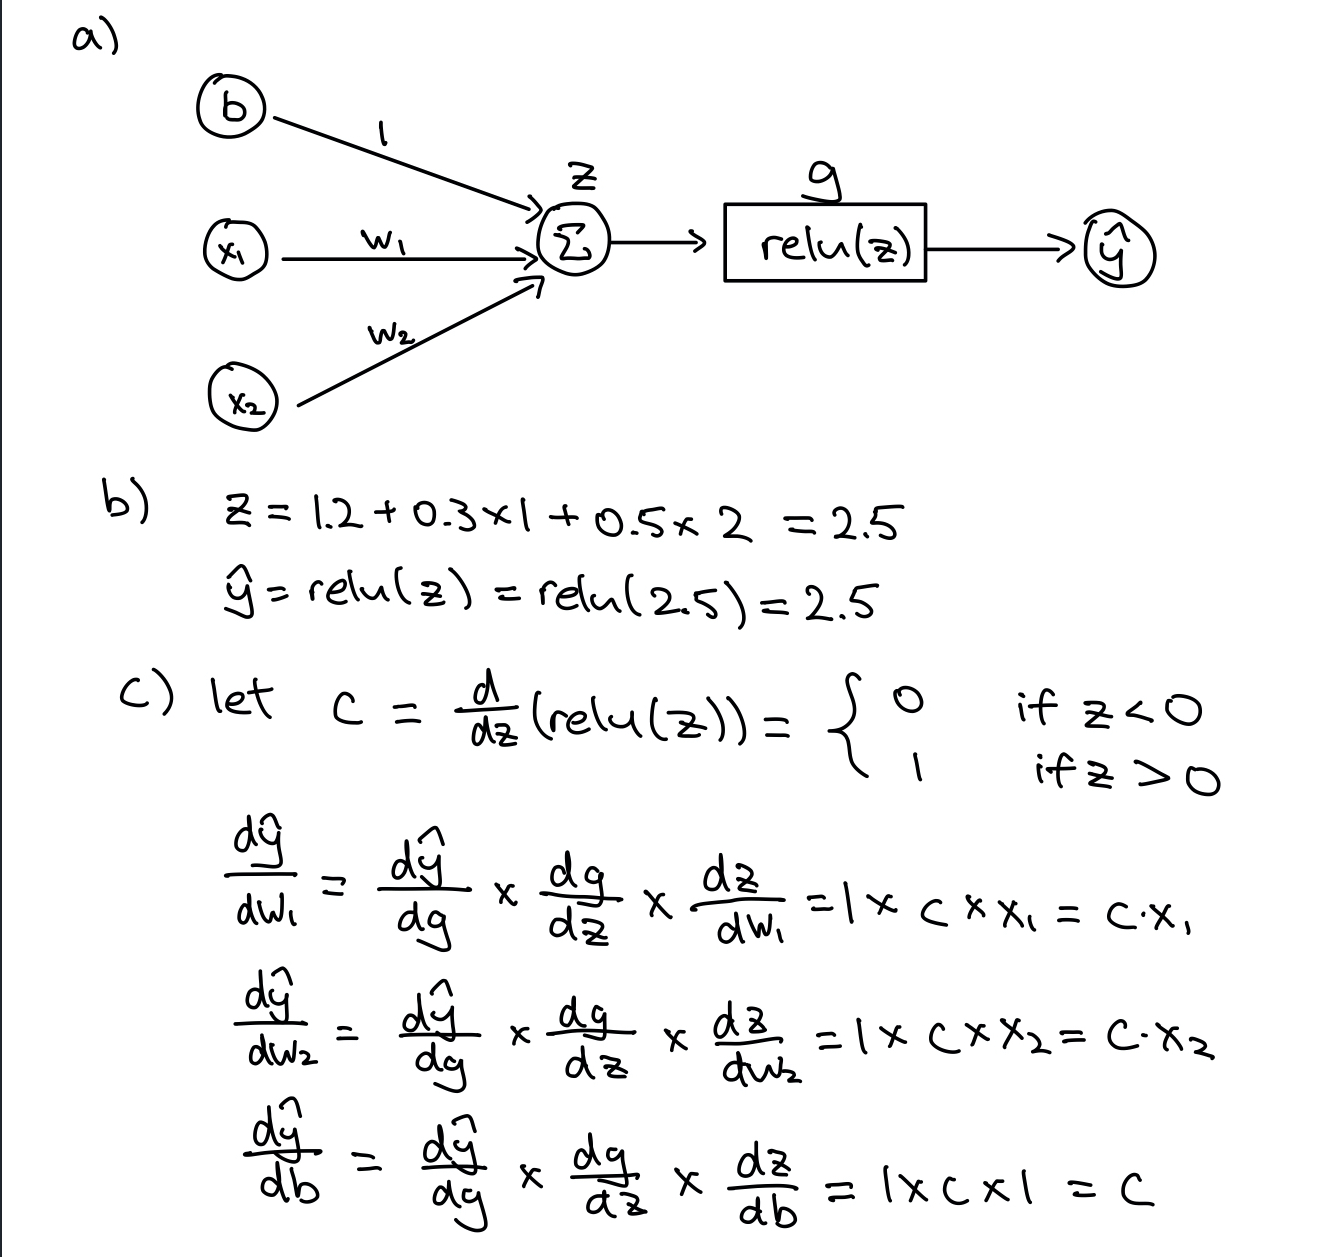 a)
b
1
z
g
x₁
w₁
Σ
relu(z)
ŷ
w₂
x₂
b) z = 1.2 + 0.3 × 1 + 0.5 × 2 = 2.5
ŷ = relu(z) = relu(2.5) = 2.5
c) let c = d/dz (relu(z)) = { 0 if z < 0
1 if z > 0
dŷ/dw₁ = dŷ/dg × dg/dz × dz/dw₁ = 1 × c × x₁ = c·x₁
dŷ/dw₂ = dŷ/dg × dg/dz × dz/dw₂ = 1 × c × x₂ = c·x₂
dŷ/db = dŷ/dg × dg/dz × dz/db = 1 × c × 1 = c